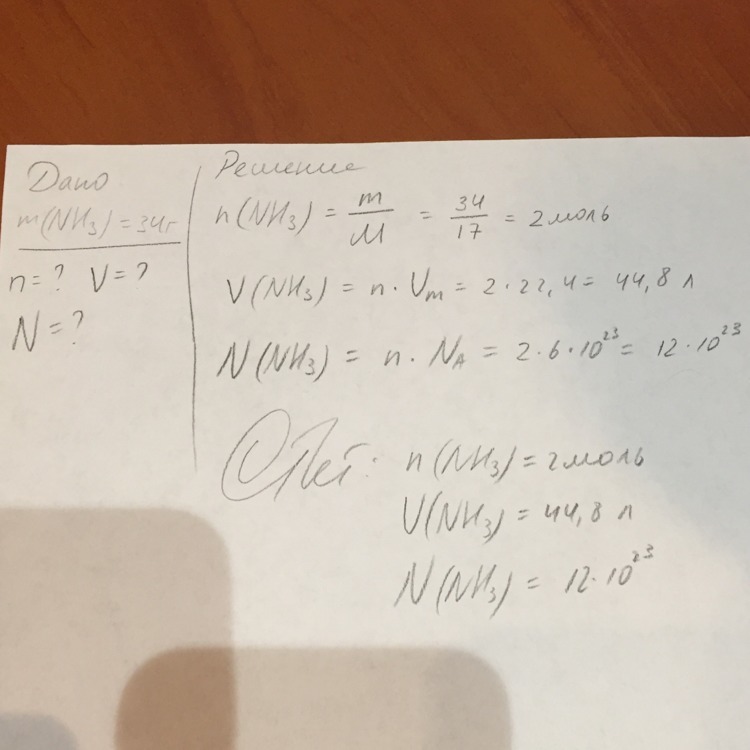 Дано
m(NH₃) = 34г
n = ? V = ?
N = ?
Решение
n(NH₃) = m/M = 34/17 = 2 моль
V(NH₃) = n · Vₘ = 2 · 22,4 = 44,8 л
N(NH₃) = n · N_A = 2 · 6 · 10²³ = 12 · 10²³
Ответ: n(NH₃) = 2 моль
V(NH₃) = 44,8 л
N(NH₃) = 12 · 10²³